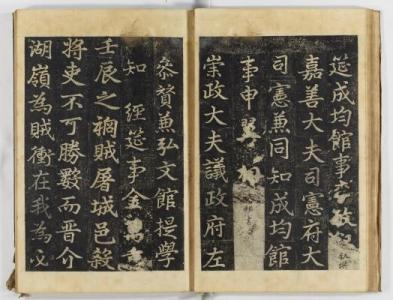 筵成均館事李敏
嘉善大夫司憲府大
司憲兼同知成均館
事申翼相
崇政大夫議政府左
叅贊兼弘文館提學
知 經筵事金萬重
壬辰之禍賊屠城邑殺
將吏不可勝數而晉介
湖嶺為賊衝在我為